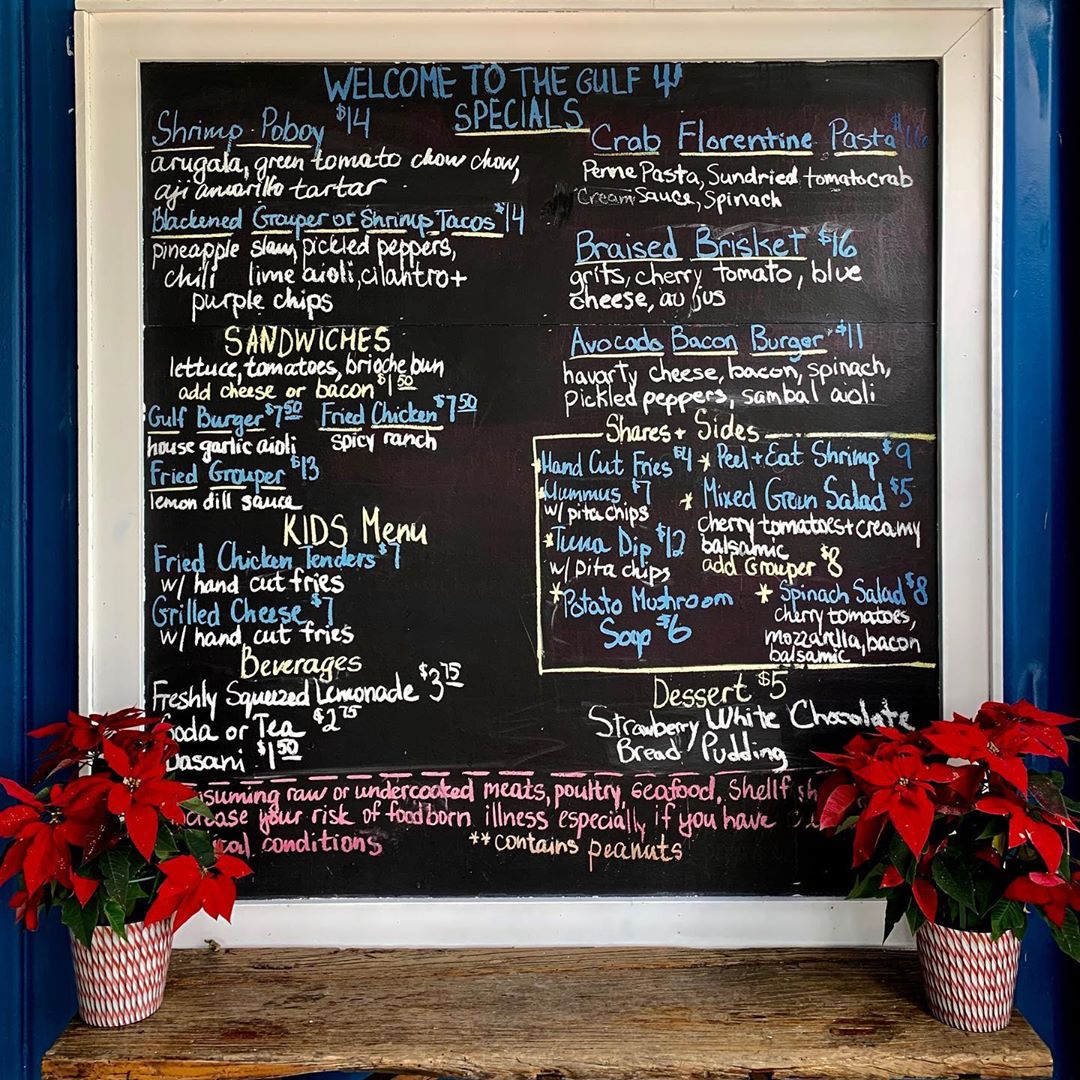 WELCOME TO THE GULF
SPECIALS
Shrimp Poboy $14
arugala, green tomato chow chow,
aji amarillo tartar
Blackened Grouper or Shrimp Tacos $14
pineapple slaw, pickled peppers,
chili lime aioli, cilantro +
purple chips
Crab Florentine Pasta $16
Penne Pasta, Sundried tomato crab
Cream Sauce, Spinach
Braised Brisket $16
grits, cherry tomato, blue
cheese, au jus
Avocado Bacon Burger $11
havarty cheese, bacon, spinach,
pickled peppers, sambal aioli
SANDWICHES
lettuce, tomatoes, brioche bun
add cheese or bacon $1.50
Gulf Burger $7.50 Fried Chicken $7.50
house garlic aioli spicy ranch
Fried Grouper $13
lemon dill sauce
KIDS Menu
Fried Chicken Tenders $7
w/ hand cut fries
Grilled Cheese $7
w/ hand cut fries
Beverages
Freshly Squeezed Lemonade $3.75
Soda or Tea $2.75
Dasani $1.50
Shares + Sides
*Hand Cut Fries $4
*Hummus $7
w/ pita chips
*Tuna Dip $12
w/ pita chips
*Potato Mushroom
Soup $6
* Peel + Eat Shrimp $9
* Mixed Green Salad $5
cherry tomatoes + creamy
balsamic
add Grouper $8
* Spinach Salad $8
cherry tomatoes,
mozzarella, bacon
balsamic
Dessert $5
Strawberry White Chocolate
Bread Pudding
suming raw or undercooked meats, poultry, seafood, Shellfish
crease your risk of foodborn illness especially if you have
ical conditions
**contains peanuts